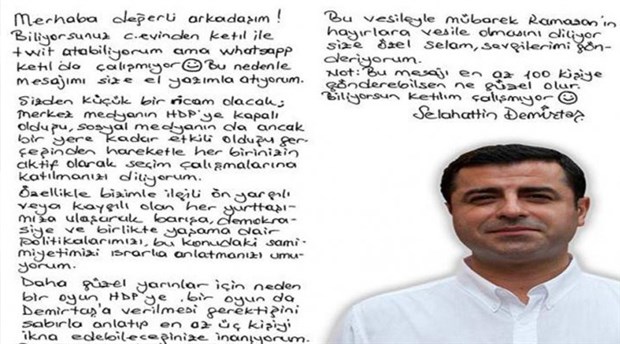 Merhaba değerli arkadaşım!
Biliyorsunuz c.evinden ketıl ile
twit atabiliyorum ama whatsapp
ketıl'da çalışmıyor☺ Bu nedenle
mesajımı size el yazımla atıyorum.
Sizden küçük bir ricam olacak;
Merkez medyanın HDP'ye kapalı
olduğu, sosyal medyanın da ancak
bir yere kadar etkili olduğu ger-
çeğinden hareketle her birinizin
aktif olarak seçim çalışmalarına
katılmanızı diliyorum.
Özellikle bizimle ilgili ön yargılı
veya kaygılı olan her yurttaşı-
mıza ulaşarak barışa, demokra-
siye ve birlikte yaşama dair
politikalarımızı, bu konudaki sami-
miyetimizi ısrarla anlatmanızı umu-
yorum.
Daha güzel yarınlar için neden
bir oyun HDP'ye, bir oyun da
Demirtaş'a verilmesi gerektiğini
sabırla anlatıp en az üç kişiyi
ikna edebileceğinize inanıyorum.
Bu vesileyle mübarek Ramazan'ın
hayırlara vesile olmasını diliyor
size özel selam, sevgilerimi gön-
deriyorum.
Not: Bu mesajı en az 100 kişiye
gönderebilsen ne güzel olur.
Biliyorsun ketılım çalışmıyor ☺
Selahattin Demirtaş